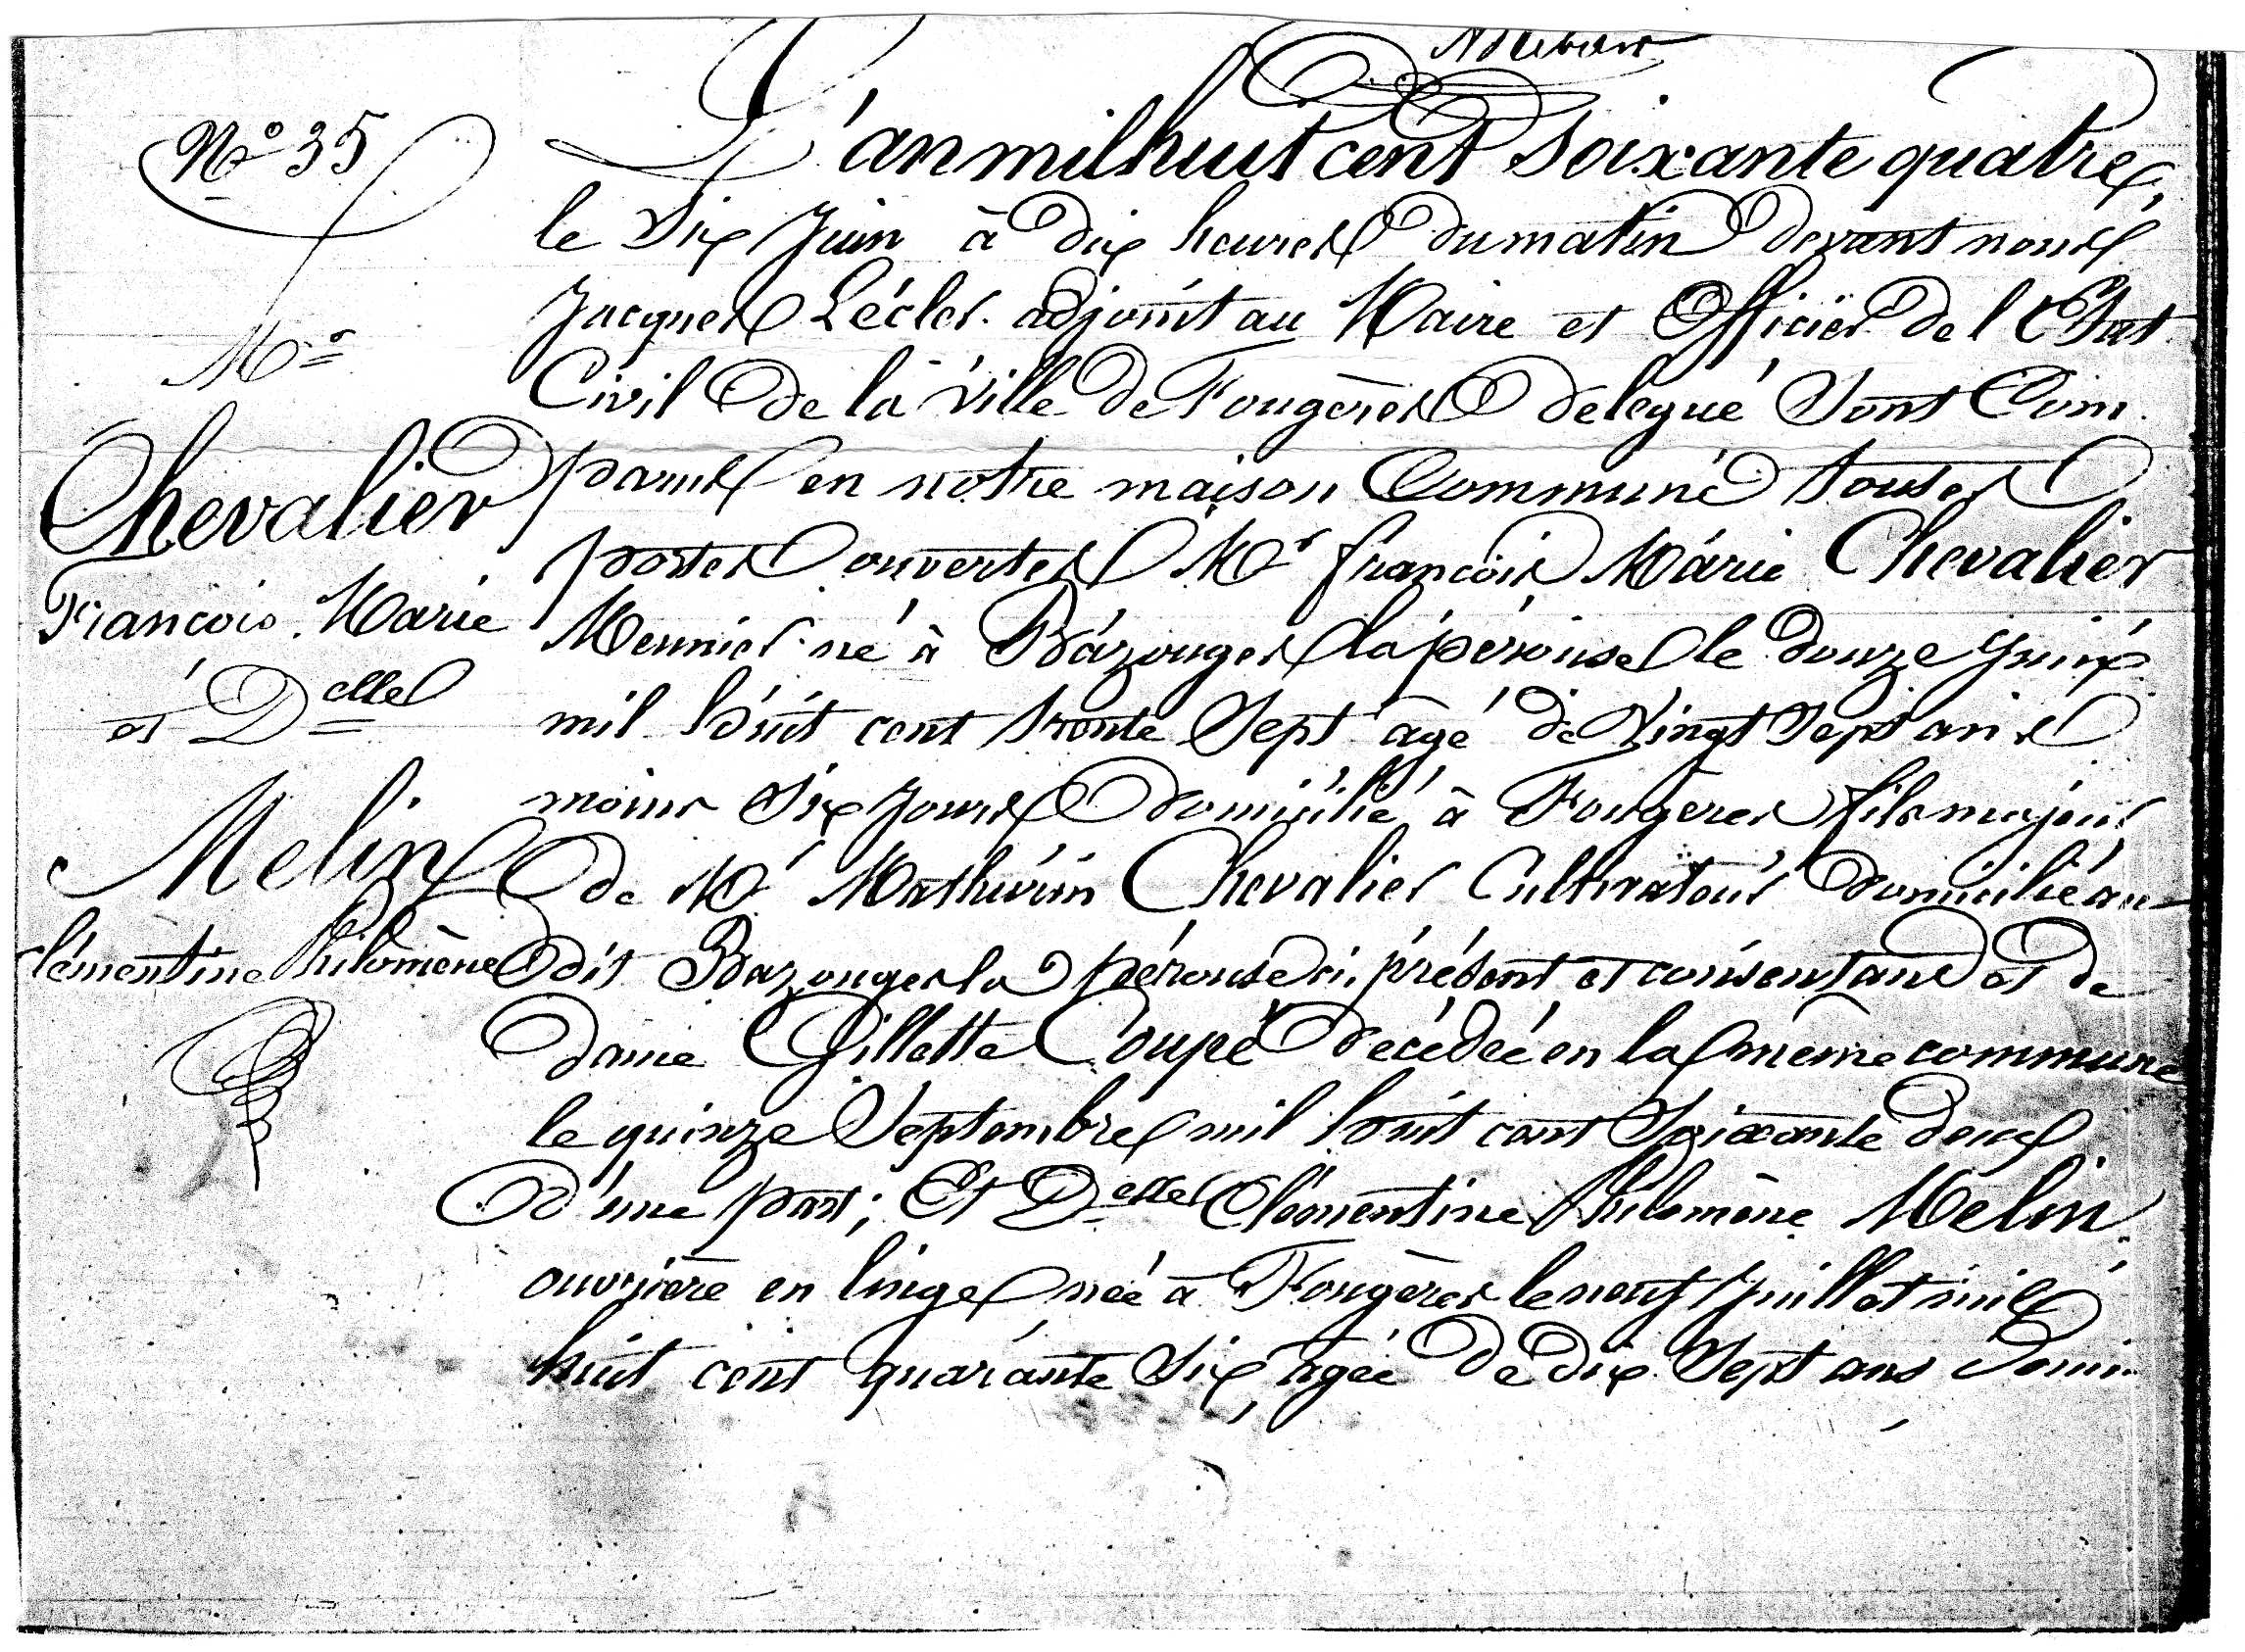 N° 35
Mr
Chevalier
François Marie
et Delle
Melin
Clémentine Philomène
L'an mil huit cent soixante quatre,
le six juin à dix heures du matin devant nous
Jacques Lécler adjoint au Maire et Officier de l'Etat
Civil de la ville de Fougères délégué sont Com
parus en notre maison Commune toutes
portes ouvertes Mr françois Marie Chevalier
Meunier né à Bazouges lapérouse le douze juin
mil huit cent trente sept âgé de Vingt sept ans
moins six jours domicilié à Fougères fils majeur
de Mr Mathurin Chevalier Cultivateur domicilié au
dit Bazouges la pérouse ci présent et consentant et de
dame Gillette Coupé décédée en la même commune
le quinze Septembre mil huit cent Soixante deux
d'une part; Et Delle Clémentine Philomène Melin
ouvrière en linge née à Fougères le neuf juillet mil
huit cent quarante six, âgée de dix sept ans domi